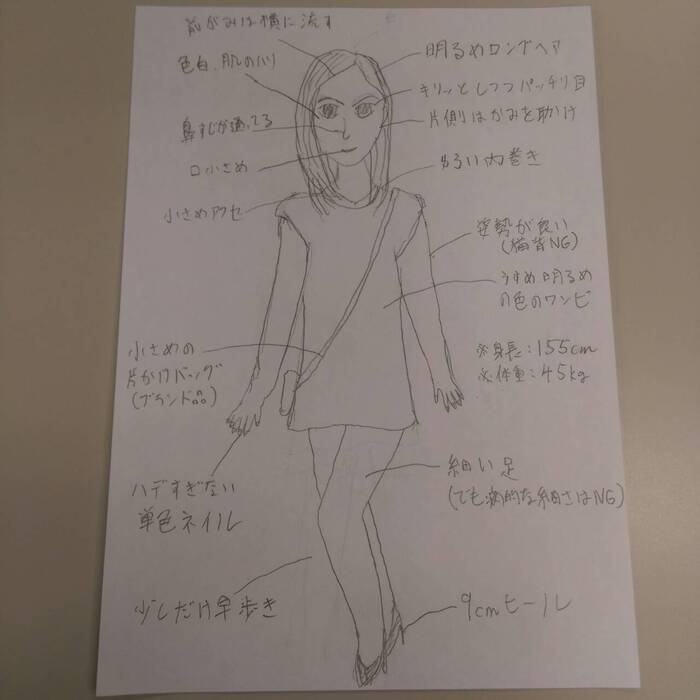 前がみは横に流す
明るめロングヘア
色白、肌のハリ
キリッとしつつパッチリ目
片側はかみを助け
鼻すじが通ってる
口小さめ
ゆるい内巻き
小さめアクセ
姿勢が良い
(猫背NG)
うすめ明るめ
の色のワンピ
小さめの
片かけバッグ
(ブランド品)
※身長:155cm
※体重:45kg
細い足
(でも病的な細さはNG)
ハデすぎない
単色ネイル
少しだけ早歩き
9cmヒール